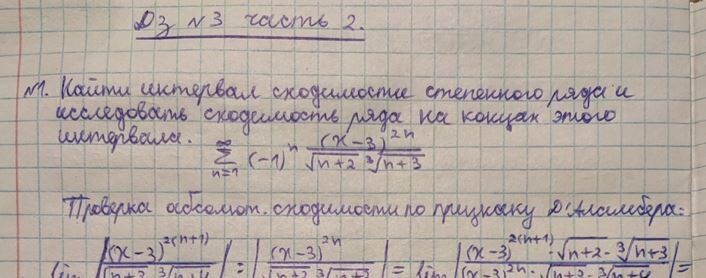 ДЗ №3 часть 2.
№1. Найти интервал сходимости степенного ряда и
исследовать сходимость ряда на концах этого
интервала.
∞ Σ n=1 (-1)^n (x-3)^{2n} / (√(n+2) ∛(n+3))
Проверка абсолют. сходимости по признаку Д'Аламбера:
lim |(x-3)^{2(n+1)} / (√(n+3) ∛(n+4))| : |(x-3)^{2n} / (√(n+2) ∛(n+3))| = lim |(x-3)^{2(n+1)} · √(n+2) · ∛(n+3) / ((x-3)^{2n} · √(n+3) · ∛(n+4))| =